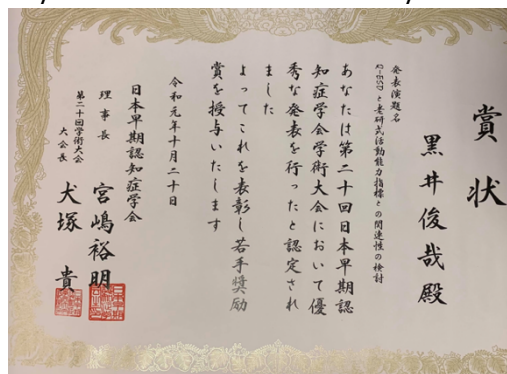 賞状
黒井俊哉殿
発表演題名
と老研式活動能力指標との関連性の検討
あなたは第二十回日本早期認
知症学会学術大会において優
秀な発表を行ったと認定され
ました
よってこれを表彰し若手奨励
賞を授与いたします
令和元年十月二十日
日本早期認知症学会
理事長 宮嶋裕明
第二十回学術大会
大会長 犬塚貴